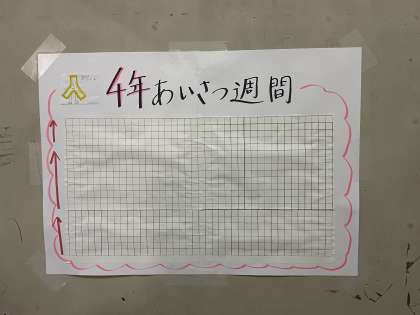 4年あいさつ週間